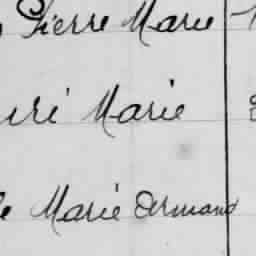 Pierre Marie
Marie
Marie Armand